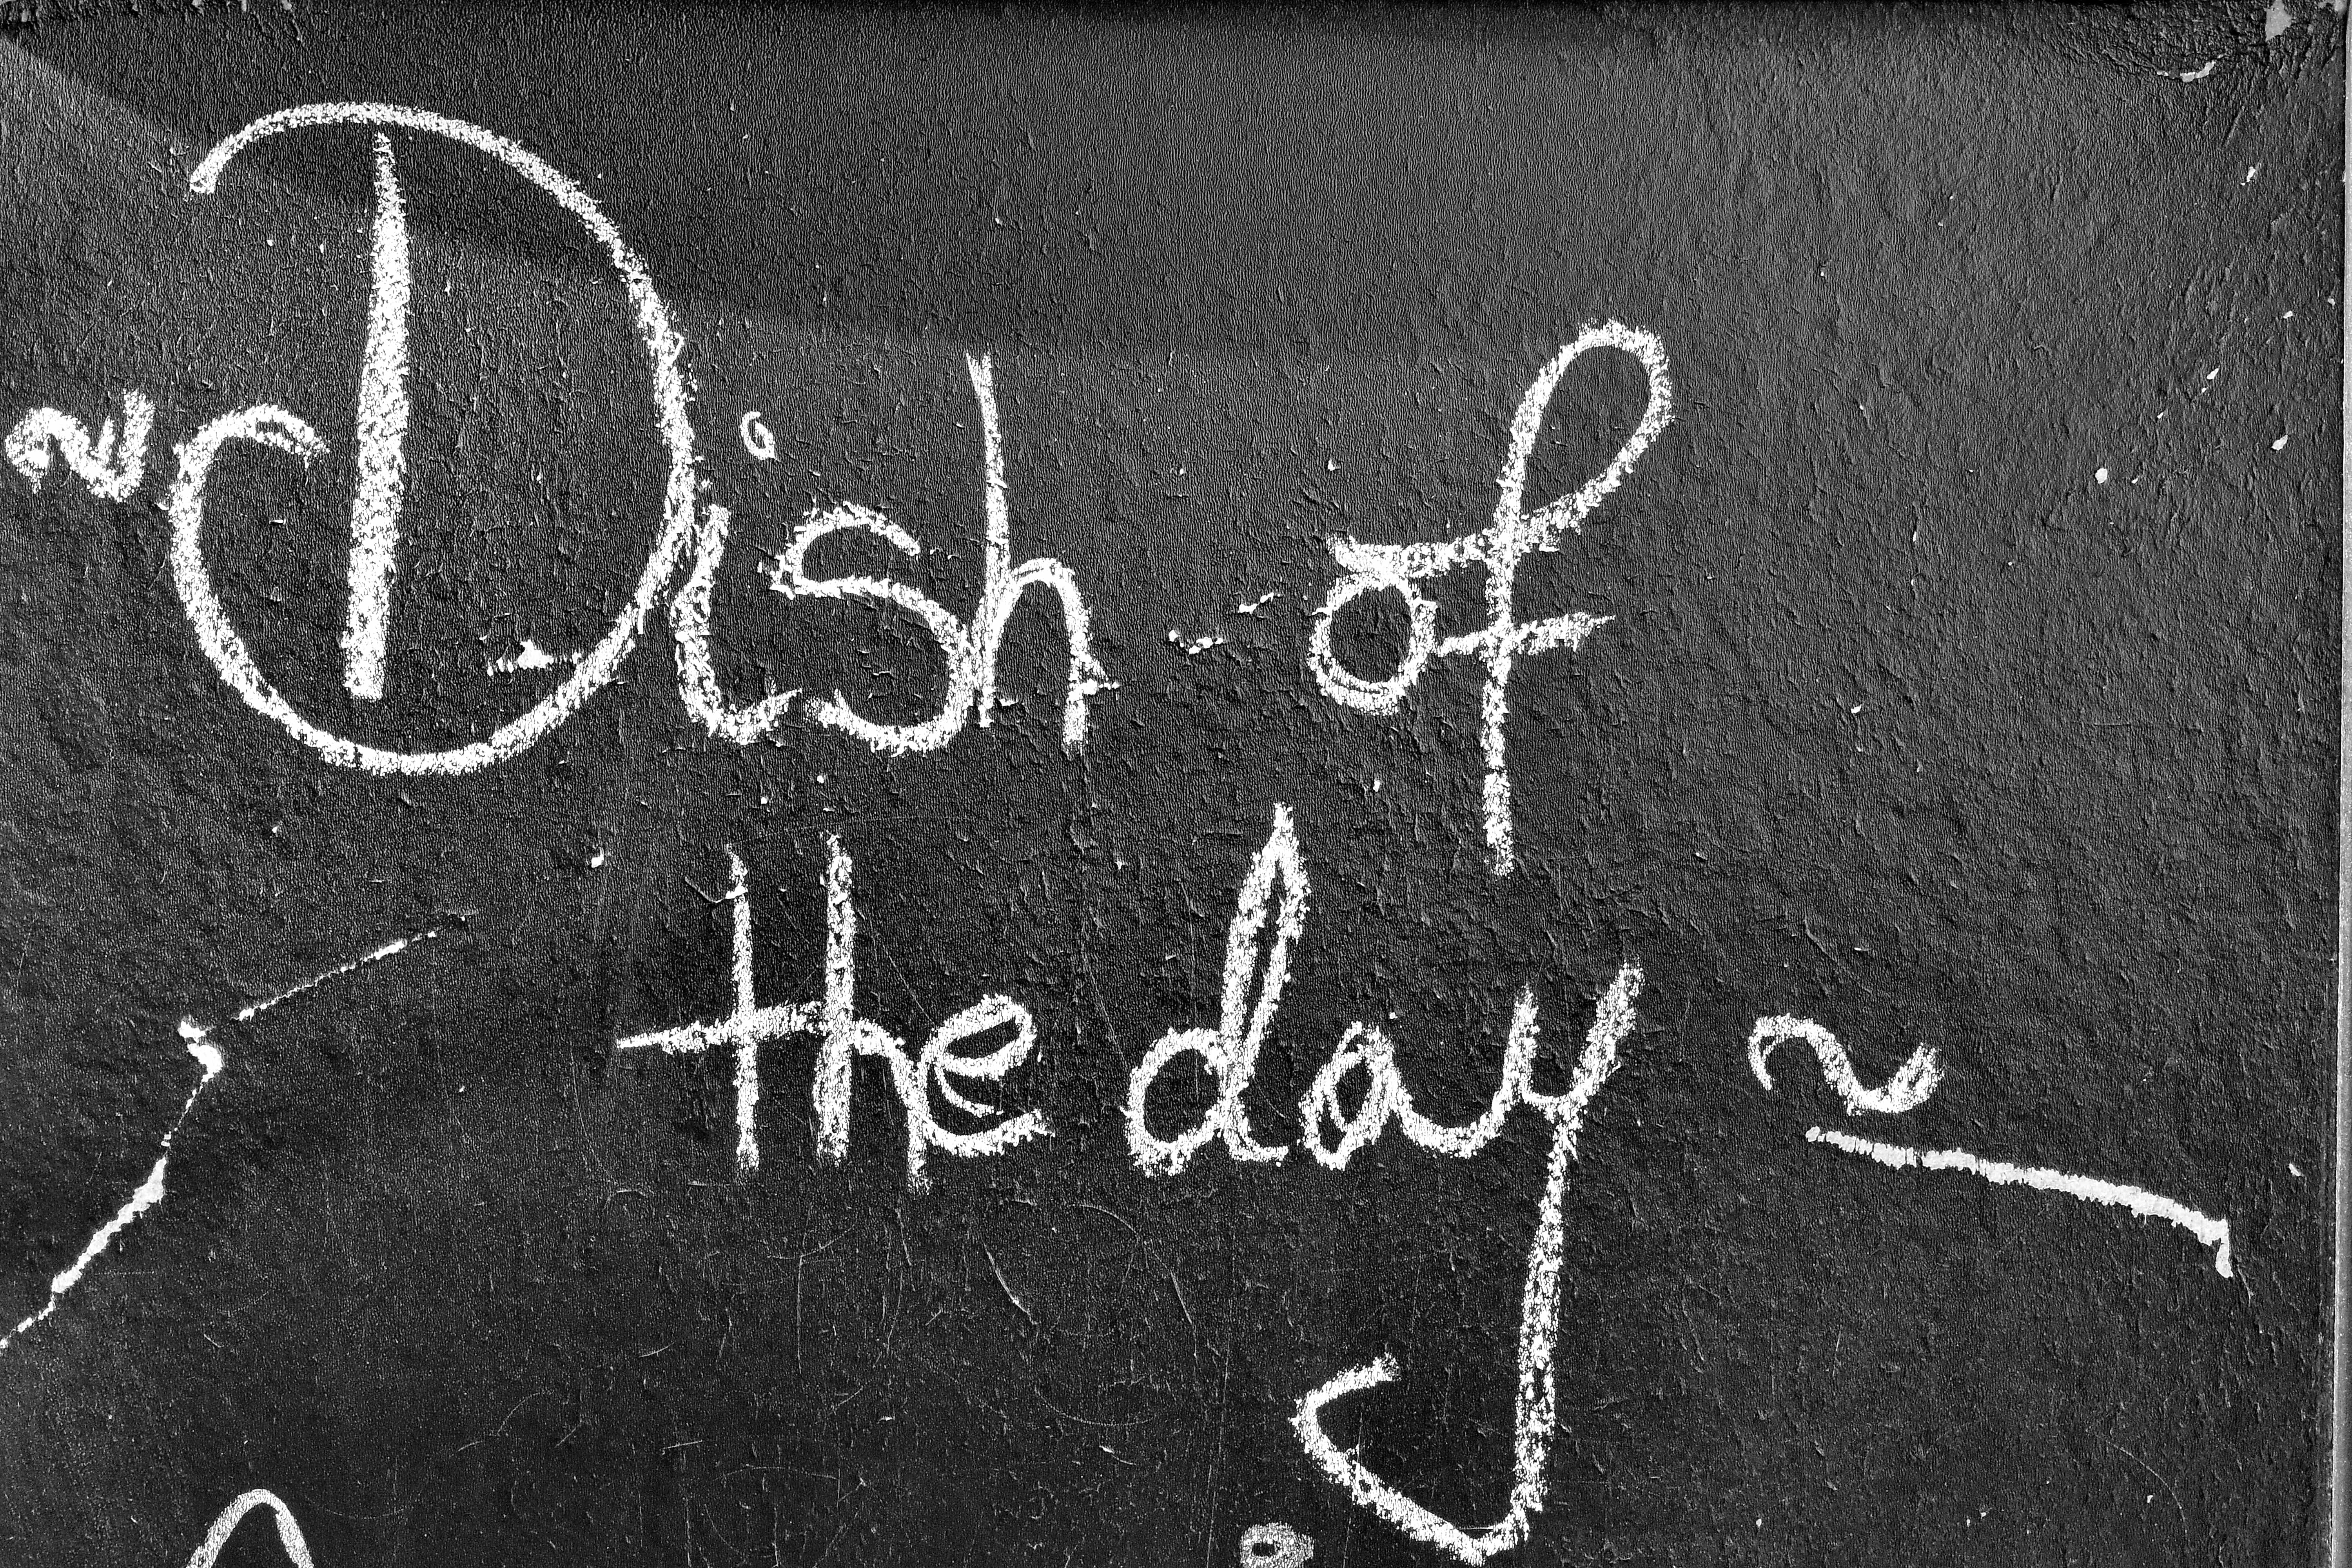 ~ Dish of
the day ~